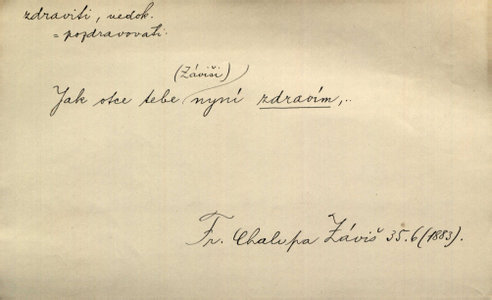 zdraviti, nedok.
= pozdravovati.
(Záviši)
Jak otce tebe nyní zdravím,..
Fr. Chalupa Záviš 35.6 (1883).